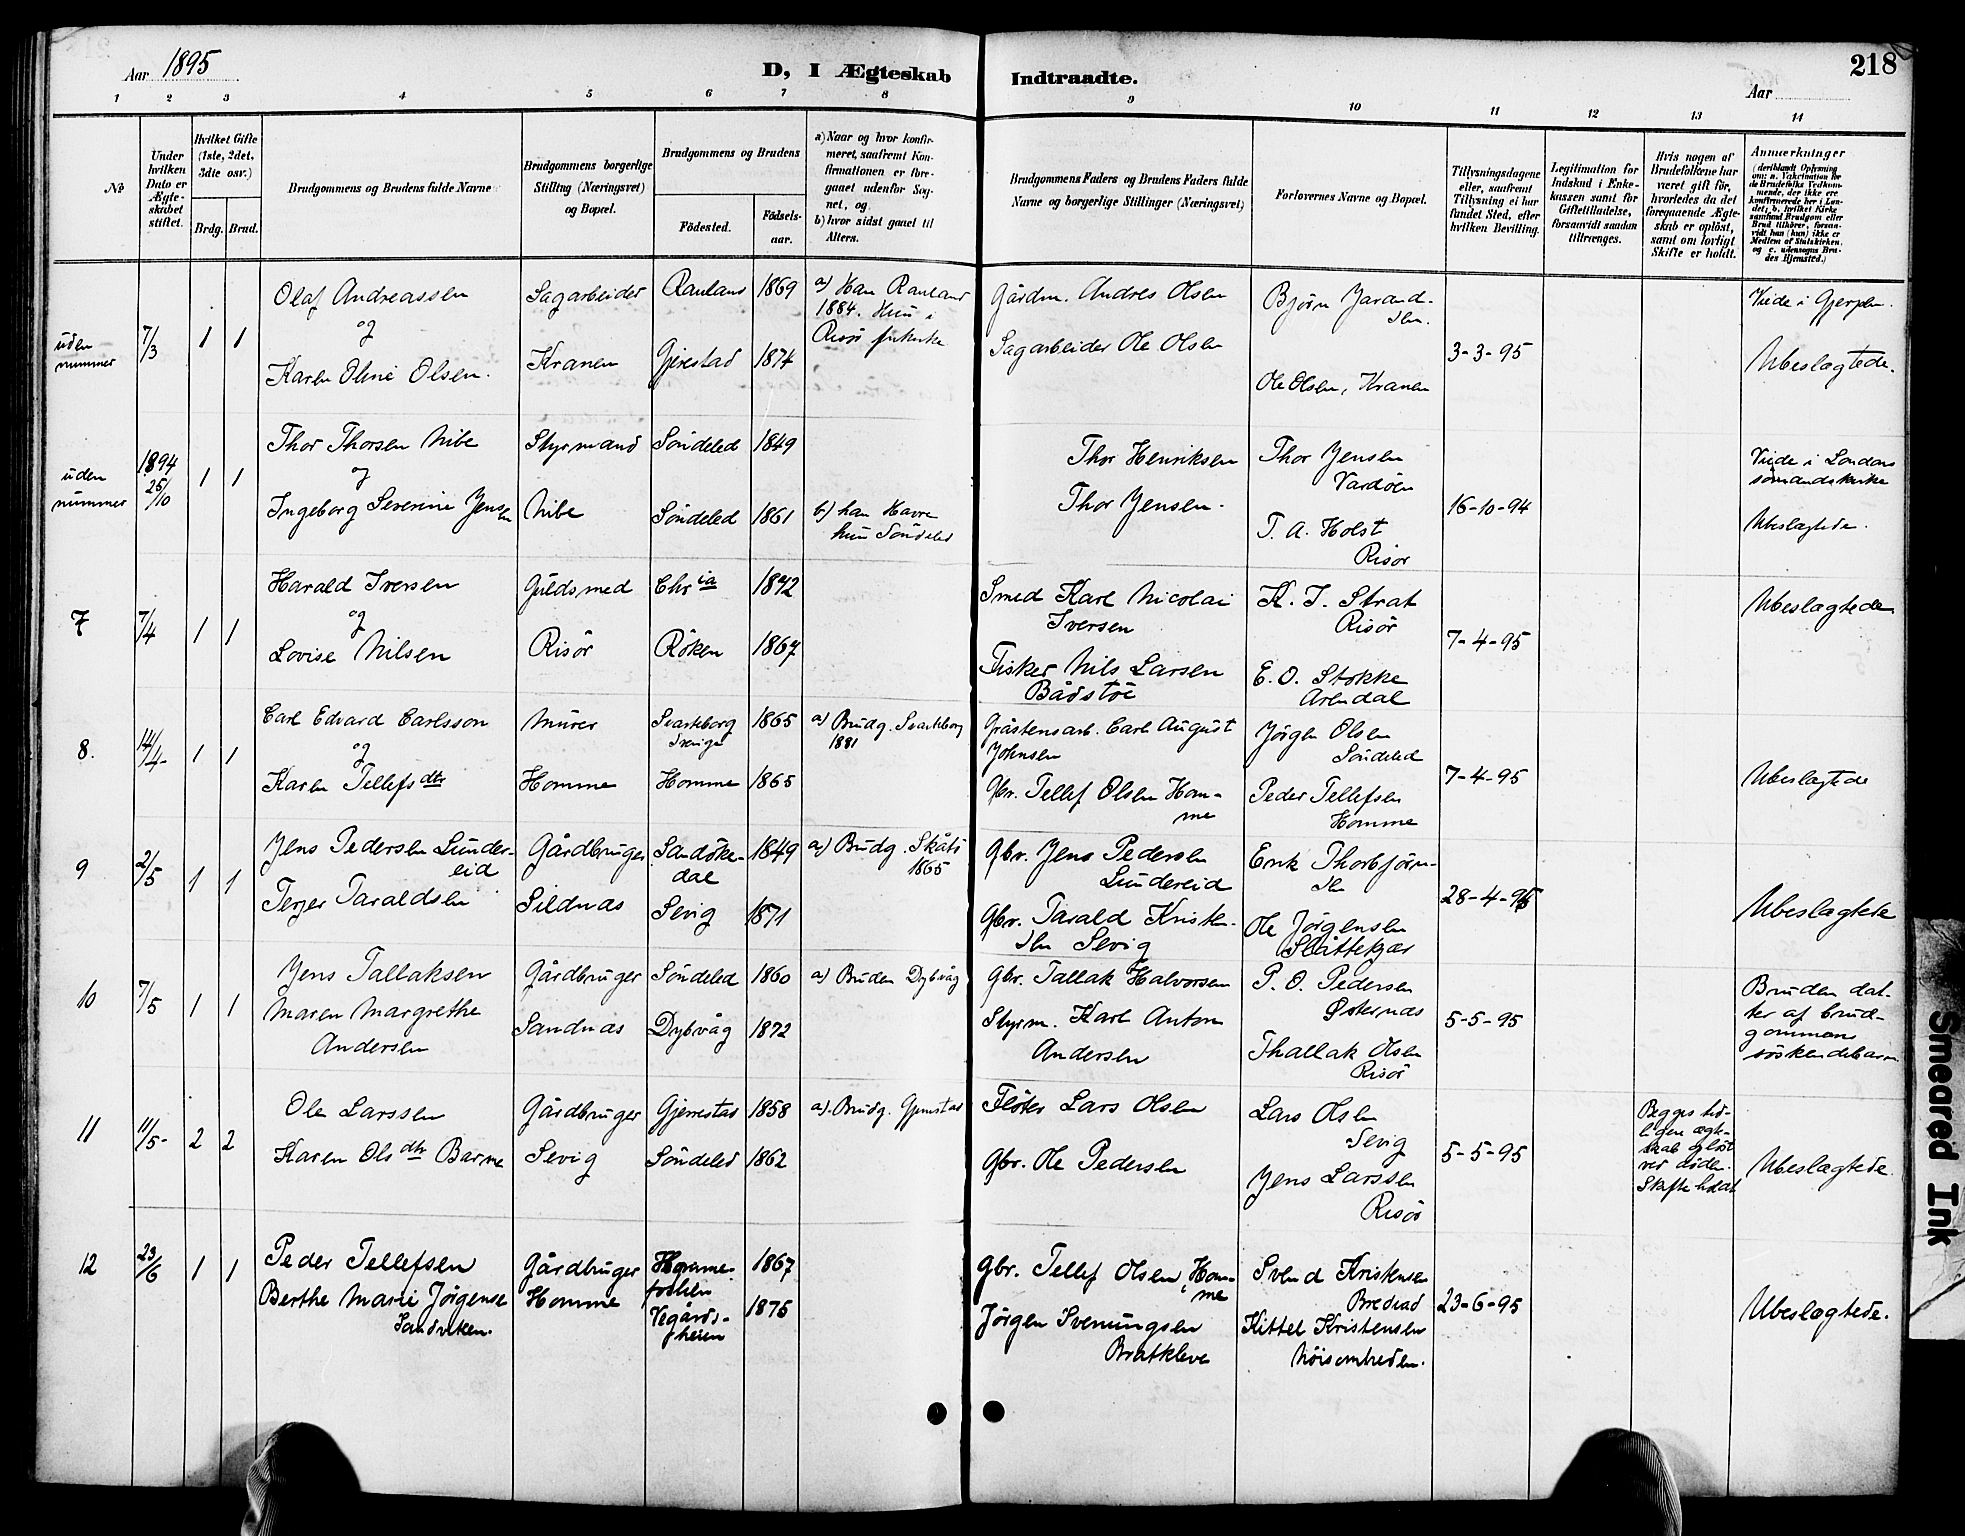 Aar 1895
D, I Ægteskab
Indtraadte.
Aar
218
1 2 3 4 5 6 7 8 9 10 11 12 13 14
No
Under hvilken Dato er Ægteskabet stiftet.
Hvilket Gifte (1ste, 2det, 3dte osv.)
Brdg. Brud.
Brudgommens og Brudens fulde Navne
Brudgommens borgerlige Stilling (Næringsvei) og Bopæl.
Brudgommens og Brudens
Födested.
Födselsaar.
a) Naar og hvor konfirmeret, saafremt Konfirmationen er foregaaet udenfor Sognet, og
b) hvor sidst gaaet til Alters.
Brudgommens Faders og Brudens Faders fulde Navne og borgerlige Stillinger (Næringsvei)
Forlovernes Navne og Bopæl.
Tillysningsdagene eller, saafremt Tillysning ei har fundet Sted, efter hvilken Bevilling.
Legitimation for Indskud i Enkekassen samt for Giftetilladelse, forsaavidt saadan tiltrænges.
Hvis nogen af Brudefolkene har været gift før, hvorledes da det foregaaende Ægteskab er oplöst, samt om lovligt Skifte er holdt.
Anmærkninger
uden nummer
7/3
1 1
Olaf Andreassen
og
Karen Oline Olsen.
Sagarbeider
Kranen
Rauland 1869
Gjerestad 1874
a) Han Rauland
1884. Hun i
Risör
Gårdm. Andres Olsen
Sagarbeider Ole Olsen
Bjørn Jarandsen.
Ole Olsen, Kranen
3-3-95
Viede i Gjerpen.
Ubeslægtede.
uden nummer
1894
25/10
1 1
Thor Thorsen Nibe
og
Ingeborg Severine Jensen
Styrmand
Nibe
Söndeled 1849
Söndeled 1861
b) han Havre
hun Söndeled
Thor Henriksen
Thor Jensen.
Thor Jensen
Vardöen
T. A. Holst
Risör
16-10-94
Viede i Londons
sömandskirke
Ubeslægtede.
7
7/4
1 1
Harald Iversen
og
Lovise Nilsen
Guldsmed
Risör
Chr ia 1872
Röken 1867
Smed Karl Nicolai
Iversen
Fisker Nils Larsen
Bådstöe
K. J. Strat
Risör
E. O. Stokke
Arendal
7-4-95
Ubeslægtede
8.
14/4
1 1
Carl Edvard Carlsson
og
Karen Tellefs dtr
Murer
Homme
Svarteborg
Sverige
1865
Homme 1865
a) Brudg. Svarteborg
1881
Gråstensarb. Carl August
Johnsen
Gbr. Tellef Olsen Homme
Jörgen Olsen
Söndeled
Peder Tellefsen
Homme
7-4-95
Ubeslægtede
9
2/5
1 1
Jens Pedersen Lundereid
Terjer Taraldsen
Gårdbruger
Sildnæs
Sandökedal
1849
Sevig 1871
a) Brudg. Skåtö
1865
Gbr. Jens Pedersen
Lundereid
Gbr. Tarald Kristensen Sevig
Erik Thorbjørnsen
Ole Jørgensen
Slåttekjær
28-4-95
Ubeslægtede
10
7/5
1 1
Jens Tallaksen
Maren Margrethe
Andersen
Gårdbruger
Sandnæs
Söndeled 1860
Dybvåg 1872
a) Bruden Dybvåg
Gbr. Tallak Halvorsen
Styrm. Karl Anton
Andersen
P. O. Pedersen
Østernæs
Thallak Olsen
Risör
5-5-95
Bruden datter af brudgommens
söskendebarn
11
11/5-
2 2
Ole Larssen
Karen Ols dtr Barme
Gårdbruger
Sevig
Gjerrestad 1858
Söndeled 1862
a). Brudg. Gjerrestad
Flöter Lars Olsen
Gbr. Ole Pedersen
Lars Olsen
Sevig
Jens Larssen
Risör
5-5-95
Begges tidligere ægteskab oplöst
ved döden.
Skifte holdt
Ubeslægtede.
12
23/6
1 1
Peder Tellefsen
Berthe Marie Jörgense
Sandviken.
Gårdbruger
Homme
Homme
1867
Vegårdsheien
1875
Gbr. Tellef Olsen, Homme
Jörgen Svenungsen
Bratkleve
Svend Kristensen
Bredvad
Kittel Kristensen
Nöisomheden.
23-6-95
Ubeslægtede.
Smeared Ink